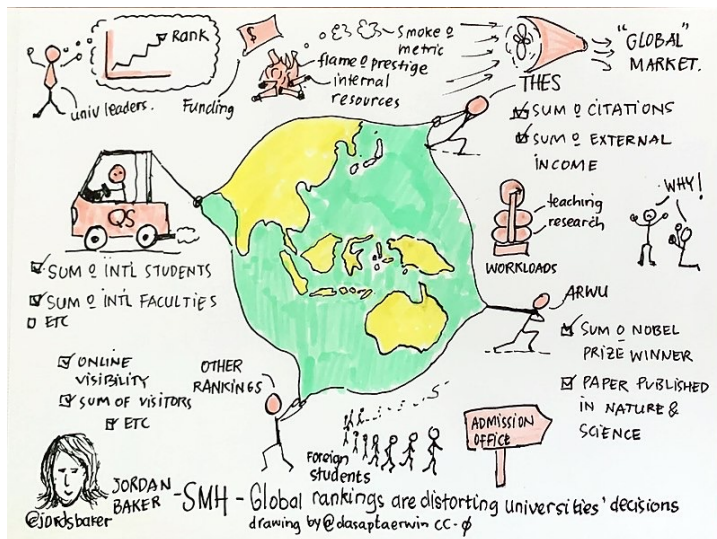 RANK
univ leaders.
$
Funding
Smoke o
metric
flame o prestige
internal
resources
"GLOBAL"
MARKET.
THES
SUM o CITATIONS
SUM o EXTERNAL
INCOME
QS
SUM o INT'L STUDENTS
SUM o INT'L FACULTIES
ETC
teaching
research
WORKLOADS
WHY!
ARWU
SUM o NOBEL
PRIZE WINNER
PAPER PUBLISHED
IN NATURE &
SCIENCE
ONLINE
VISIBILITY
SUM OF VISITORS
ETC
OTHER
RANKINGS
Foreign
students
ADMISSION
OFFICE
JORDAN
BAKER
@jordsbaker
-SMH - Global rankings are distorting universities' decisions
drawing by @dasaptaerwin CC-0